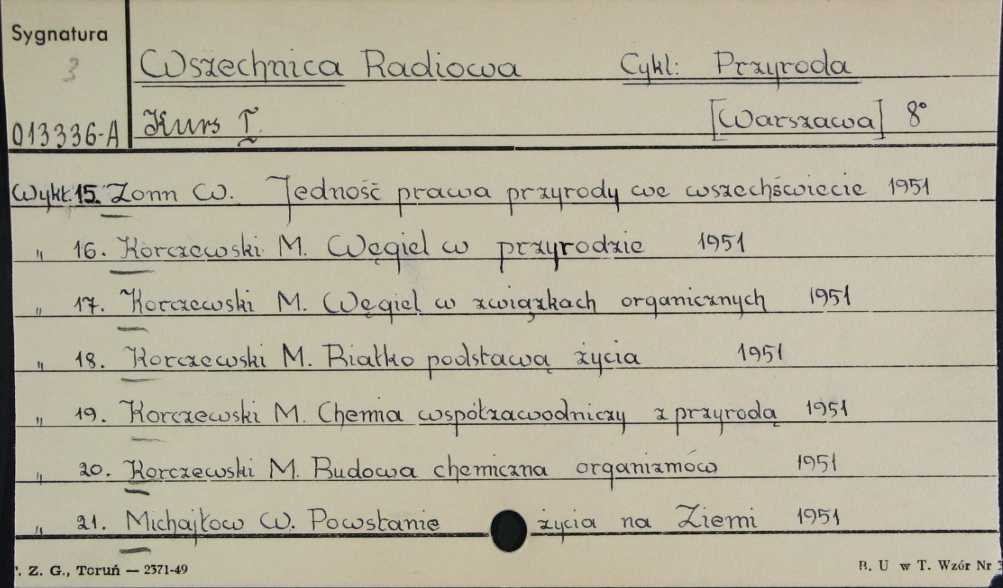 Sygnatura
3
Wszechnica Radiowa Cykl: Przyroda
013336-A Kurs I. [Warszawa] 8°
Wykł. 15. Zonn W. Jedność prawa przyrody we wszechświecie 1951
„ 16. Korczewski M. Węgiel w przyrodzie 1951
„ 17. Korczewski M. Węgiel w związkach organicznych 1951
„ 18. Korczewski M. Białko podstawą życia 1951
„ 19. Korczewski M. Chemia współzawodniczy z przyrodą 1951
„ 20. Korczewski M. Budowa chemiczna organizmów 1951
„ 21. Michajłow W. Powstanie życia na Ziemi 1951
. Z. G., Toruń — 2371-49 B. U w T. Wzór Nr